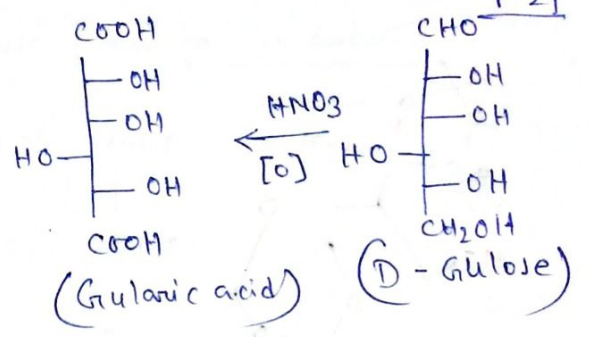 COOH
OH
OH
HO
OH
COOH
(Gularic acid)
HNO3
[O]
CHO
OH
OH
HO
OH
CH2OH
(D - Gulose)